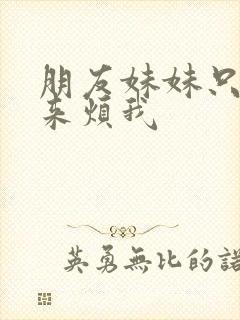 朋友妹妹只
来煩我
英勇無比的諾